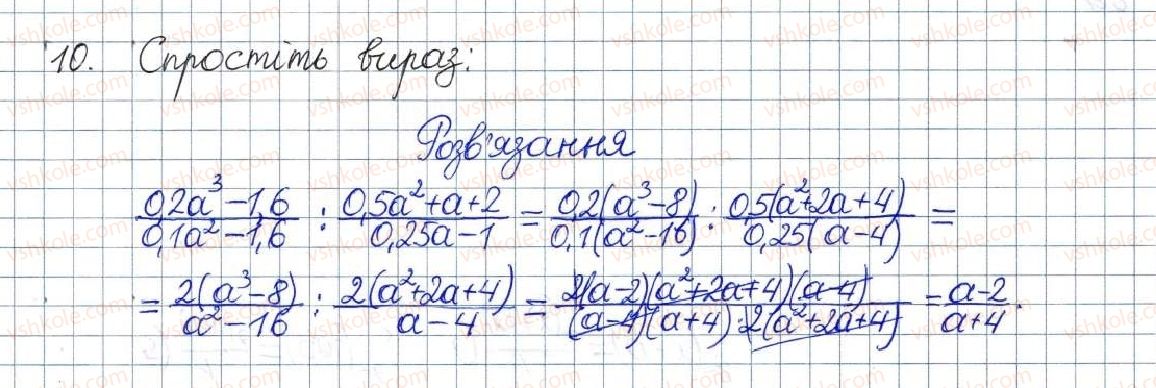 10. Спростіть вираз:
Розв'язання
(0,2a³ - 1,6)/(0,1a² - 1,6) : (0,5a² + a + 2)/(0,25a - 1) = 0,2(a³ - 8)/0,1(a² - 16) : 0,5(a² + 2a + 4)/0,25(a - 4) =
= 2(a³ - 8)/(a² - 16) : 2(a² + 2a + 4)/(a - 4) = 2(a - 2)(a² + 2a + 4)(a - 4)/(a - 4)(a + 4)·2(a² + 2a + 4) = (a - 2)/(a + 4).